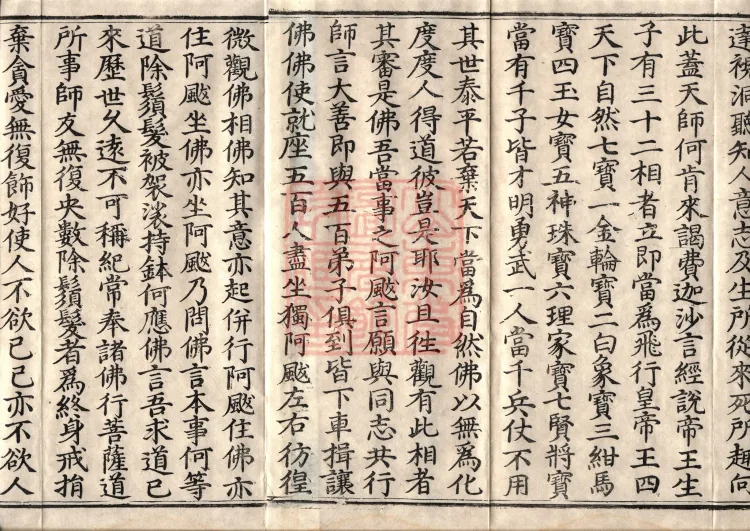 達視洞聽知人意志及生所從來死所趣向
此蓋天師何肯來謁費迦沙言經說帝王生
子有三十二相者立即當為飛行皇帝王四
天下自然七寶一金輪寶二白象寶三紺馬
寶四玉女寶五神珠寶六理家寶七賢將寶
當有千子皆才明勇武一人當千兵仗不用
其世泰平若棄天下當為自然佛以無為化
度度人得道彼豈是耶汝且往觀有此相者
其審是佛吾當事之阿颰言願與同志共行
師言大善即與五百弟子俱到皆下車揖讓
佛佛使就座五百人盡坐獨阿颰左右彷徨
微觀佛相佛知其意亦起併行阿颰住佛亦
住阿颰坐佛亦坐阿颰乃問佛言本事何等
道除鬚髮被袈裟持鉢何應佛言吾求道已
來歷世久遠不可稱紀常奉諸佛行菩薩道
所事師友無復央數除鬚髮者為終身戒捐
棄貪愛無復飾好使人不欲已已亦不欲人